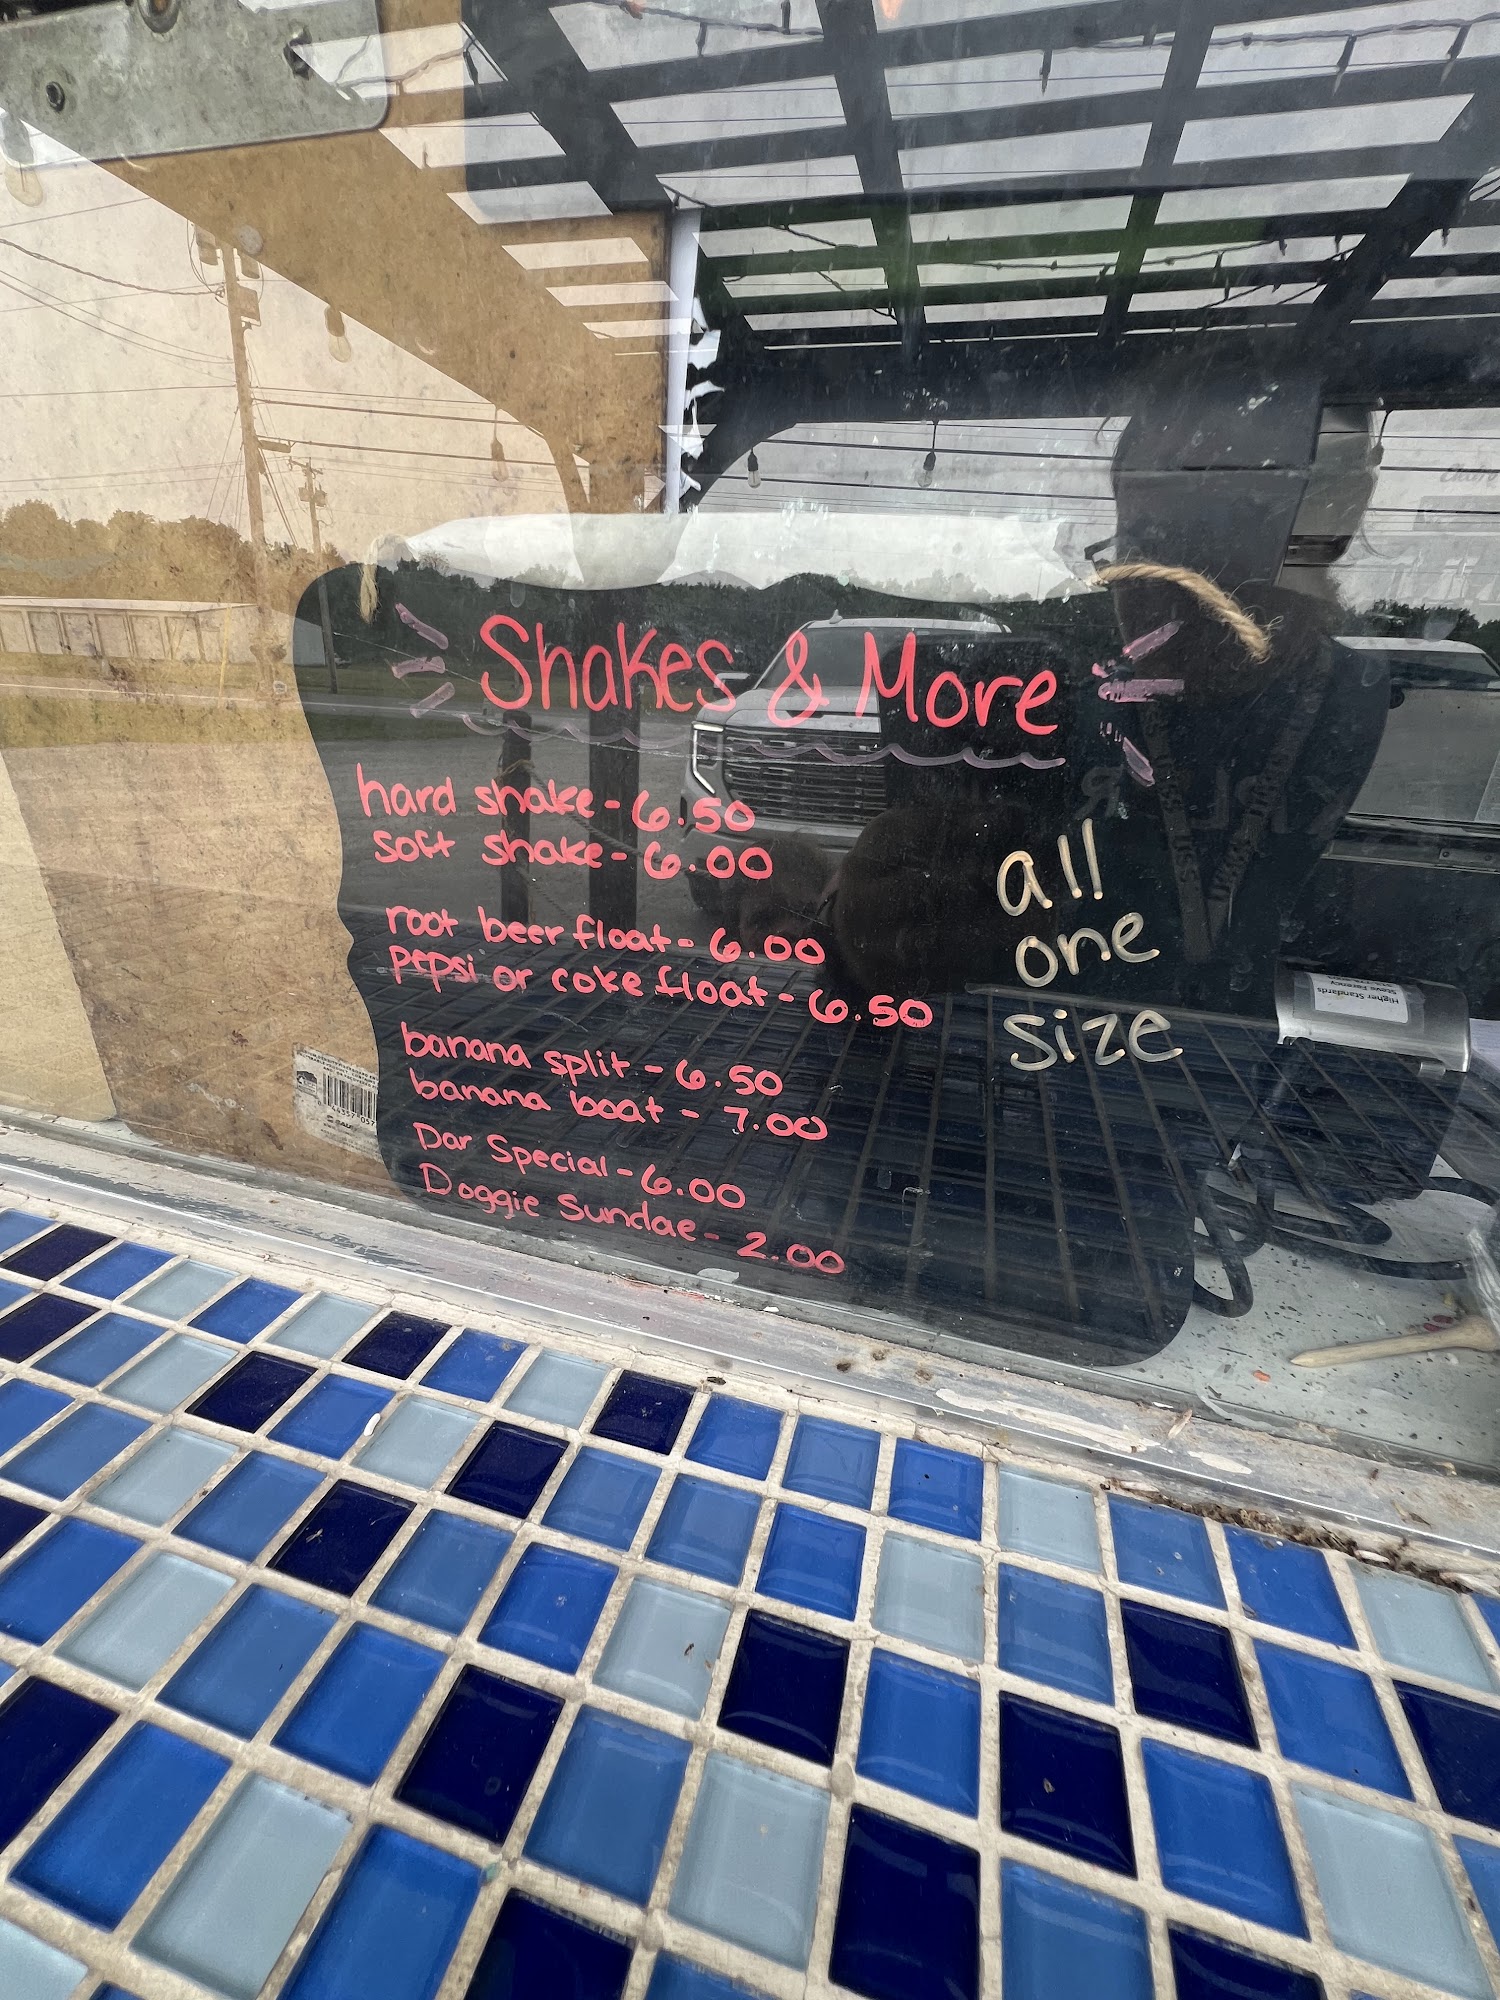 Shakes & More
hard shake - 6.50
soft shake - 6.00
root beer float - 6.00
pepsi or coke float - 6.50
banana split - 6.50
banana boat - 7.00
Dar Special - 6.00
Doggie Sundae - 2.00
all
one
size
Higher Standards